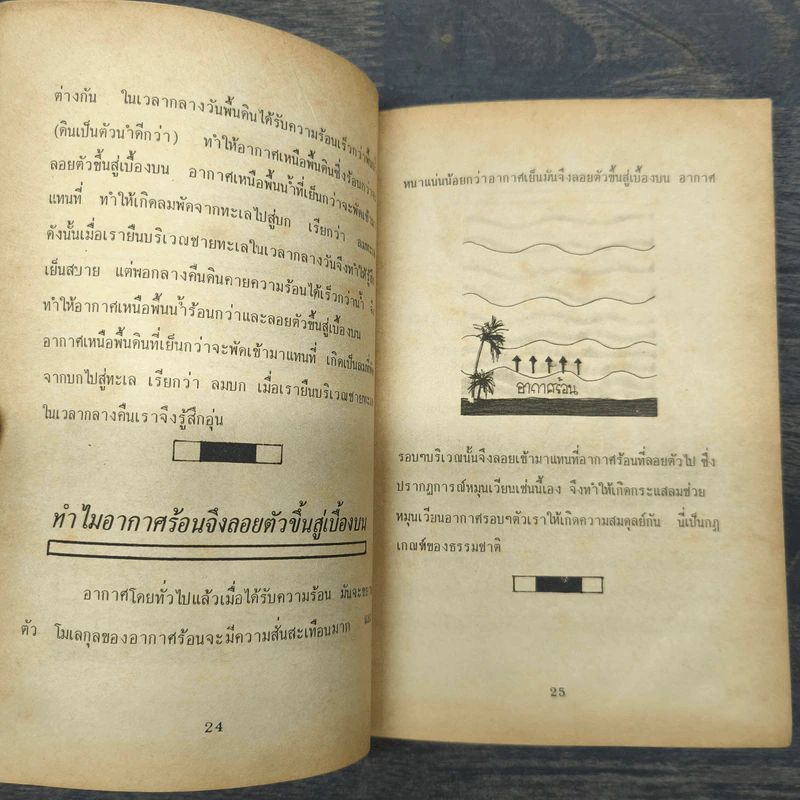 ต่างกัน ในเวลากลางวันพื้นดินได้รับความร้อนเร็วกว่า
(ดินเป็นตัวนำดีกว่า) ทำให้อากาศเหนือพื้นดินซึ่งร้อนกว่า
ลอยตัวขึ้นสู่เบื้องบน อากาศเหนือพื้นน้ำที่เย็นกว่าจะพัดเข้า
แทนที่ ทำให้เกิดลมพัดจากทะเลไปสู่บก เรียกว่า
ดังนั้นเมื่อเรายืนบริเวณชายทะเลในเวลากลางวันจึงทำให้
เย็นสบาย แต่พอกลางคืนดินคายความร้อนได้เร็วกว่าน้ำ
ทำให้อากาศเหนือพื้นน้ำร้อนกว่าและลอยตัวขึ้นสู่เบื้องบน
อากาศเหนือพื้นดินที่เย็นกว่าจะพัดเข้ามาแทนที่ เกิดเป็นลม
จากบกไปสู่ทะเล เรียกว่า ลมบก เมื่อเรายืนบริเวณชาย
ในเวลากลางคืนเราจึงรู้สึกอุ่น
ทำไมอากาศร้อนจึงลอยตัวขึ้นสู่เบื้องบน
อากาศโดยทั่วไปแล้วเมื่อได้รับความร้อน มันจะ
ตัว โมเลกุลของอากาศร้อนจะมีความสั่นสะเทือนมาก
24
หนาแน่นน้อยกว่าอากาศเย็นมันจึงลอยตัวขึ้นสู่เบื้องบน อากาศ
อากาศร้อน
รอบๆบริเวณนั้นจึงลอยเข้ามาแทนที่อากาศร้อนที่ลอยตัวไป ซึ่ง
ปรากฏการณ์หมุนเวียนเช่นนี้เอง จึงทำให้เกิดกระแสลมช่วย
หมุนเวียนอากาศรอบๆตัวเราให้เกิดความสมดุลย์กัน นี่เป็นกฎ
เกณฑ์ของธรรมชาติ
25